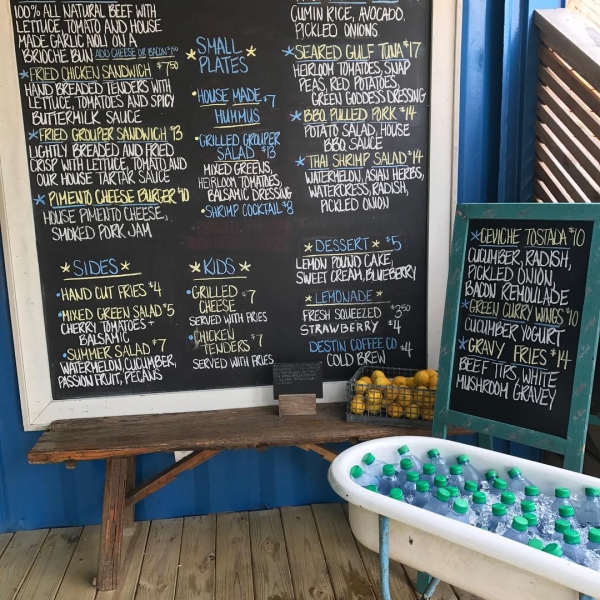 100% ALL NATURAL BEEF WITH
LETTUCE, TOMATO AND HOUSE
MADE GARLIC AIOLI ON A
BRIOCHE BUN ADD CHEESE OR BACON
FRIED CHICKEN SANDWICH $7.50
HAND BREADED TENDERS WITH
LETTUCE, TOMATOES AND SPICY
BUTTERMILK SAUCE
FRIED GROUPER SANDWICH $13
LIGHTLY BREADED AND FRIED
CRISP WITH LETTUCE, TOMATO AND
OUR HOUSE TARTAR SAUCE
PIMENTO CHEESE BURGER $10
HOUSE PIMENTO CHEESE,
SMOKED PORK JAM
SIDES
HAND CUT FRIES $4
MIXED GREEN SALAD $5
CHERRY TOMATOES +
BALSAMIC
SUMMER SALAD $7
WATERMELON, CUCUMBER,
PASSION FRUIT, PECANS
SMALL
PLATES
HOUSE MADE $7
HUMMUS
GRILLED GROUPER
SALAD $13
MIXED GREENS,
HEIRLOOM TOMATOES,
BALSAMIC DRESSING
SHRIMP COCKTAIL $8
KIDS
GRILLED
CHEESE $7
SERVED WITH FRIES
CHICKEN
TENDERS $7
SERVED WITH FRIES
CUMIN RICE, AVOCADO,
PICKLED ONIONS
SEARED GULF TUNA $17
HEIRLOOM TOMATOES, SNAP
PEAS, RED POTATOES,
GREEN GODDESS DRESSING
BBQ PULLED PORK $14
POTATO SALAD, HOUSE
BBQ SAUCE
THAI SHRIMP SALAD $14
WATERMELON, ASIAN HERBS,
WATERCRESS, RADISH,
PICKLED ONION
DESSERT $5
LEMON POUND CAKE,
SWEET CREAM, BLUEBERRY
LEMONADE
FRESH SQUEEZED $3.50
STRAWBERRY $4
DESTIN COFFEE CO $4
COLD BREW
CEVICHE TOSTADA $10
CUCUMBER, RADISH,
PICKLED ONION,
BACON REMOULADE
GREEN CURRY WINGS $10
CUCUMBER YOGURT
GRAVY FRIES $14
BEEF TIPS, WHITE
MUSHROOM GRAVY